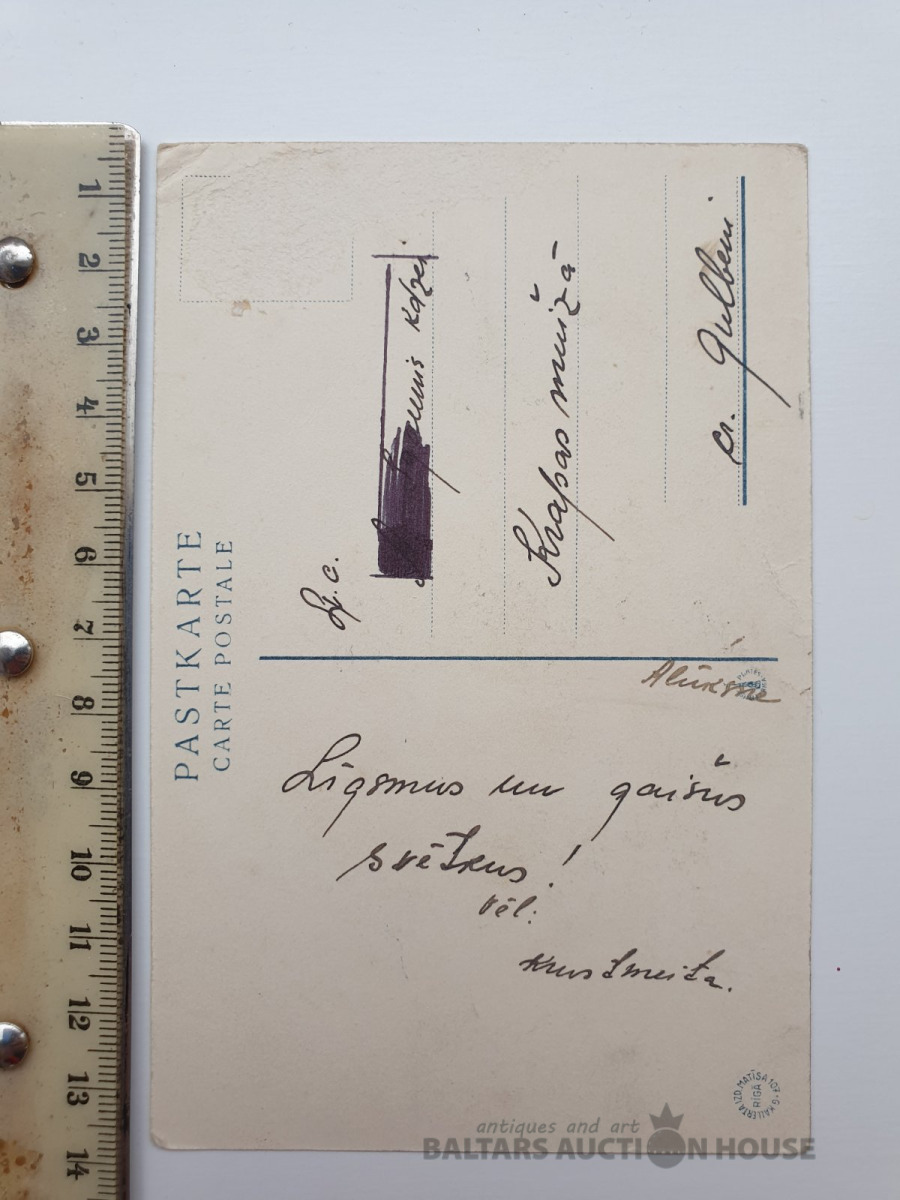 PASTKARTE
CARTE POSTALE
Līgsmus un gaišus
svētkus!
Vēl:
krustmeita.
Krapas muižā
cr. Gulbeni
Alūksne
G. KAILERTA IZD. MATĪSA 107.
RĪGĀ
1 2 3 4 5 6 7 8 9 10 11 12 13 14
antiques and art
BALTARS AUCTION HOUSE